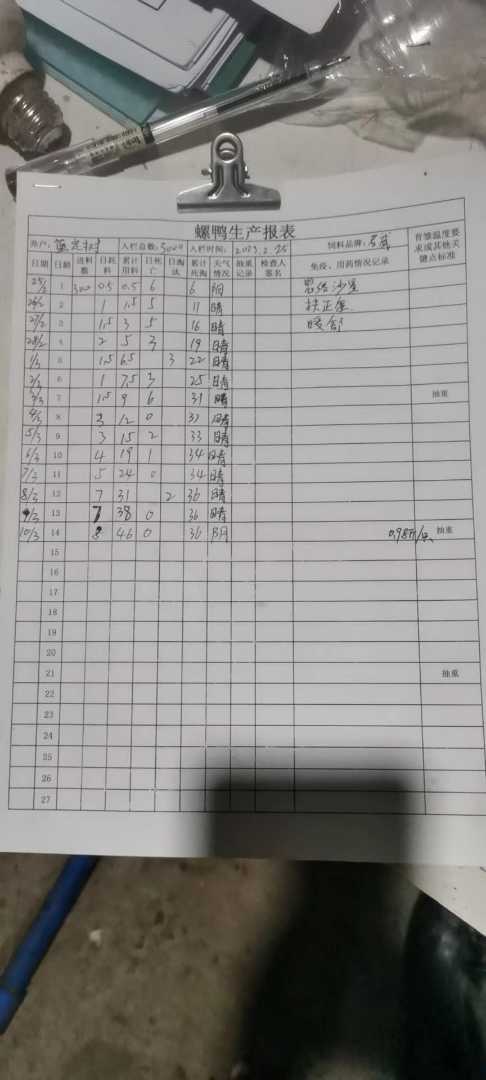 螺鸭生产报表
养户： 入栏总数：5000 入栏时间：2023.2.25 饲料品牌： 育雏温度要求或其他关键点标准
日期 日龄 进料数 日耗料 累计用料 日死亡 日淘汰 累计死淘 天气情况 抽重记录 检查人签名 免疫、用药情况记录
25/2 1 300 0.5 0.5 6 6 阴 恩诺沙星
26/2 2 1 1.5 5 11 晴 扶正
27/2 3 1.5 3 5 16 晴
28/2 4 2 5 3 19 晴
1/3 5 1.5 6.5 3 22 晴
2/3 6 1 7.5 3 25 晴
3/3 7 1.5 9 6 31 晴 抽重
4/3 8 3 12 0 晴
5/3 9 3 15 2 33 晴
6/3 10 4 19 1 34 晴
7/3 11 5 24 0 34 晴
8/3 12 7 31 2 36 晴
9/3 13 7 38 0 36 晴
10/3 14 8 46 0 36 阴 0.98斤/只 抽重
15
16
17
18
19
20
21 抽重
22
23
24
25
26
27